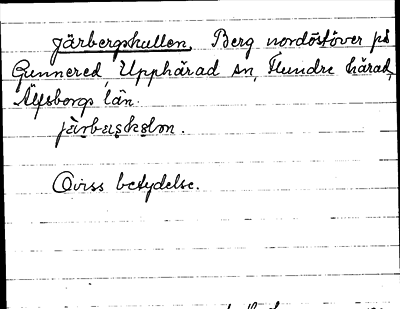 Järbergskullen, Berg nordöstöver på
Gunnered, Upphärad sn, Flundre härad,
Älfsborgs län.
Oviss betydelse.